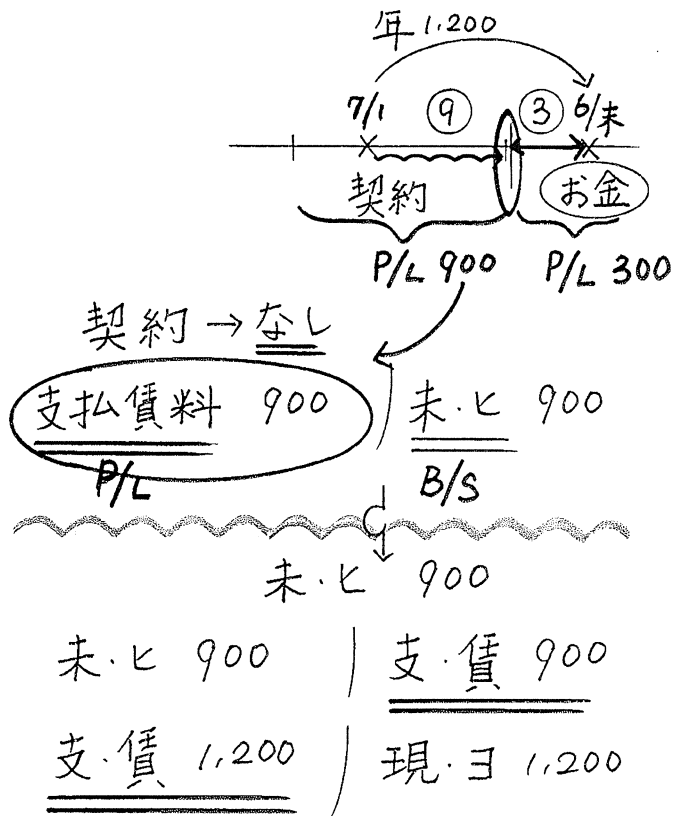 年 1,200
7/1 ⑨ ③ 6/末
契約 お金
P/L 900 P/L 300
契約 → なし
支払賃料 900 / 未・ヒ 900
P/L B/S
未・ヒ 900
未・ヒ 900 / 支・賃 900
支・賃 1,200 / 現・ヨ 1,200